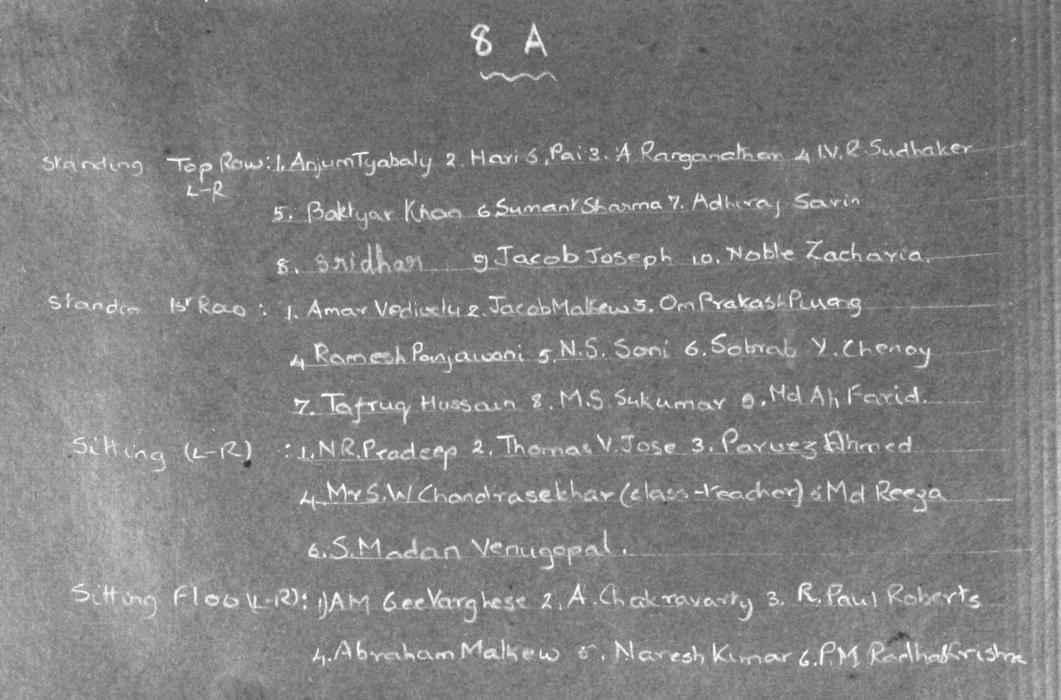 8 A
Standing Top Row: 1. Anjum Tyabaly 2. Hari S. Pai 3. A Ranganathan 4 I.V.R. Sudhaker
L-R
5. Baktyar Khan 6 Sumant Sharma 7. Adhiraj Sarin
8. Sridhar 9 Jacob Joseph 10. Noble Zacharia.
Standin Ist Row : 1. Amar 2. Jacob Mathew 3. Om Prakash
4 Ramesh Panjawani 5. N.S. Soni 6. Sobrab Y. Chenoy
7. Tafruq Hussain 8. M.S. Sukumar 9. Md Ali Farid.
Sitting (L-R) : 1. N.R. Pradeep 2. Thomas V. Jose 3. Parvez Ahmed
4. Mrs. W Chandrasekhar (class-teacher) 5 Md Reeza
6. S. Madan Venugopal.
Sitting Floo (L-R): 1) AM GeeVarghese 2. A. Chakravarty 3. R. Paul Roberts
4. Abraham Mathew 5. Naresh Kumar 6. P.M Radhakrishna